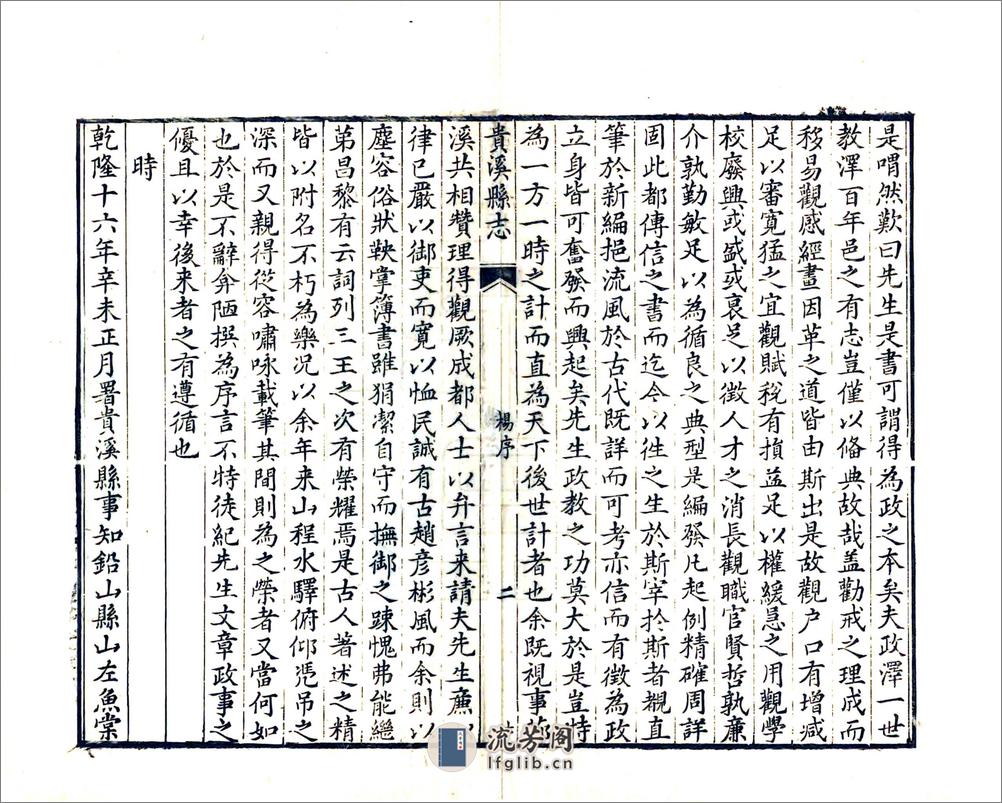 是喟然歎曰先生是書可謂得為政之本矣夫政澤一世
教澤百年邑之有志豈僅以俻典故哉盖勸戒之理成而
移易觀感經畫因革之道皆由斯出是故觀户口有增减
足以審寛猛之宜觀賦稅有損益足以權緩急之用觀學
校廢興或盛或衰足以徵人才之消長觀職官賢哲孰廉
介孰勤敏足以為循良之典型是編發凡起例精確周詳
固此都傳信之書而迄今以徃之生於斯宰於斯者覩直
筆於新編挹流風於古代既詳而可考亦信而有徵為政
立身皆可奮發而興起矣先生政教之功莫大於是豈特
為一方一時之計而直為天下後世計者也余既視事
貴溪縣志
楊序
二
溪共相贊理得觀厥成都人士以弁言来請夫先生廉以
律已嚴以御吏而寛以恤民誠有古趙彦彬風而余則以
塵容俗狀鞅掌簿書雖狷潔自守而撫御之踈愧弗能繼
第昌黎有云詞列三王之次有榮耀焉是古人著述之精
皆以附名不朽為樂况以余年来山程水驛俯仰憑吊之
深而又親得從容嘯咏載筆其間則為之榮者又當何如
也於是不辭弇陋撰為序言不特徒紀先生文章政事之
優且以幸後来者之有遵循也
時
乾隆十六年辛未正月署貴溪縣事知鉛山縣山左魚棠
流芳阁
lfglib.cn